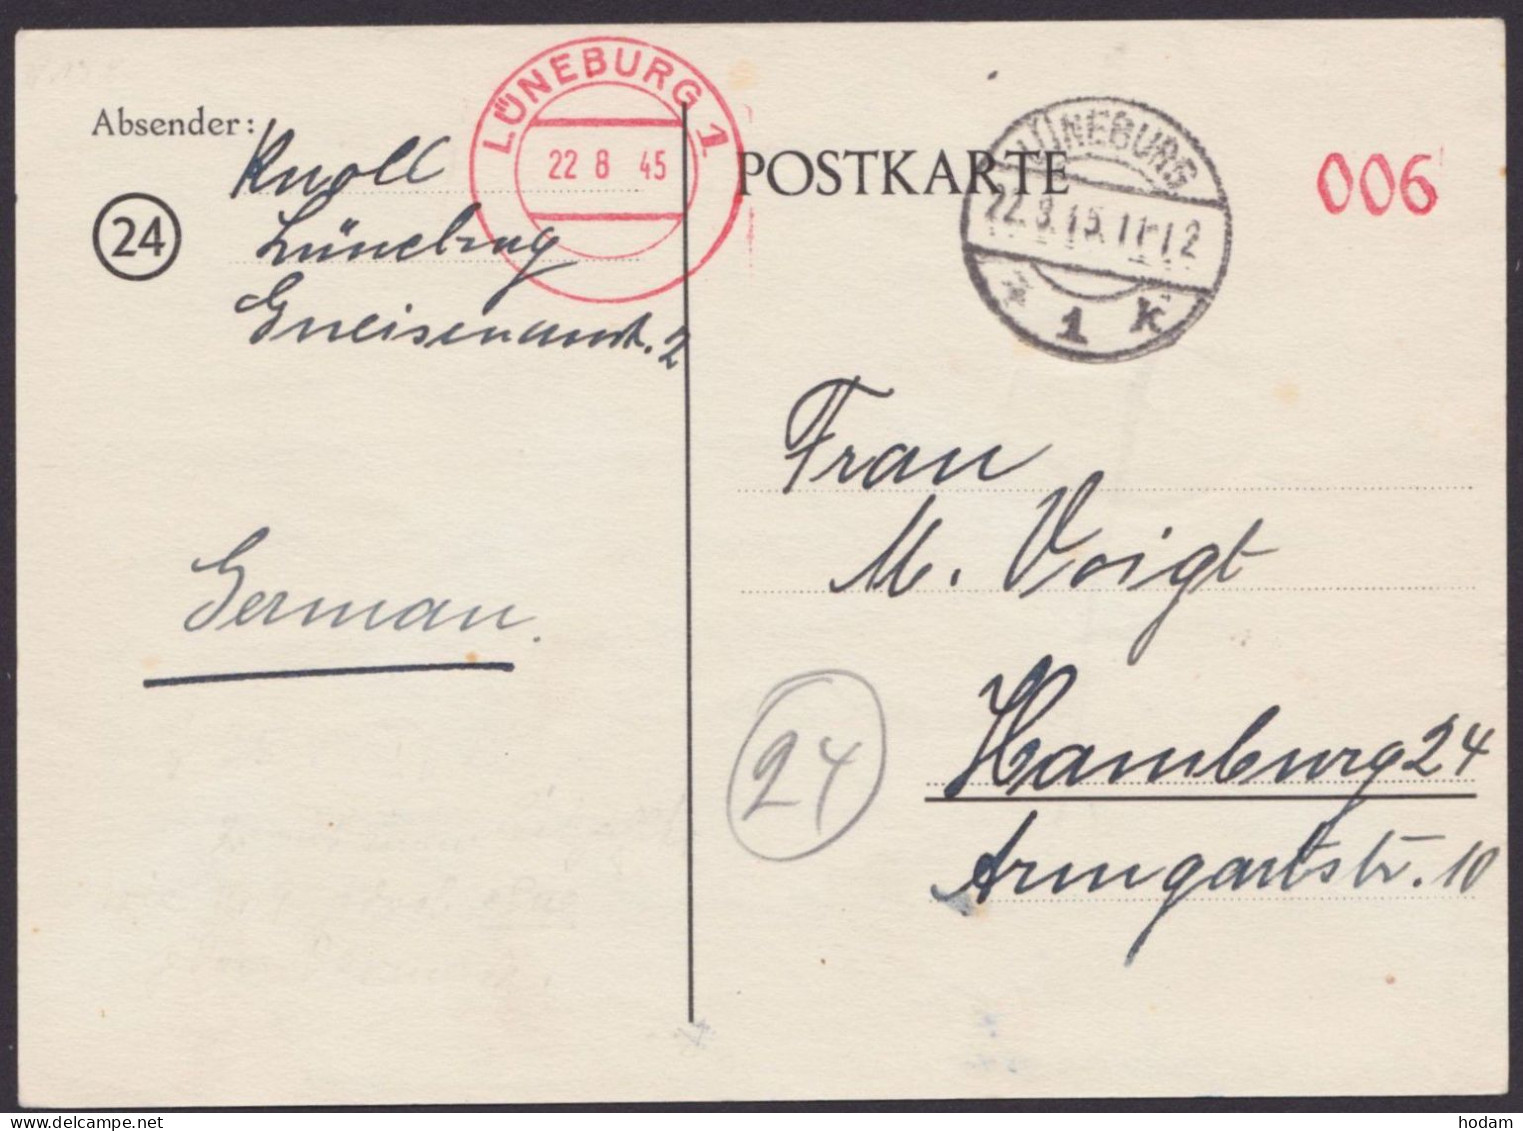 Absender:
Knoll
24
Lüneburg
Gneisenaustr. 2
LÜNEBURG 1
22 8 45
POSTKARTE
LÜNEBURG
22.8.45.11-12
* 1 k
006
German.
Frau
M. Voigt
24
Hamburg 24
Armgartstr. 10
hodam